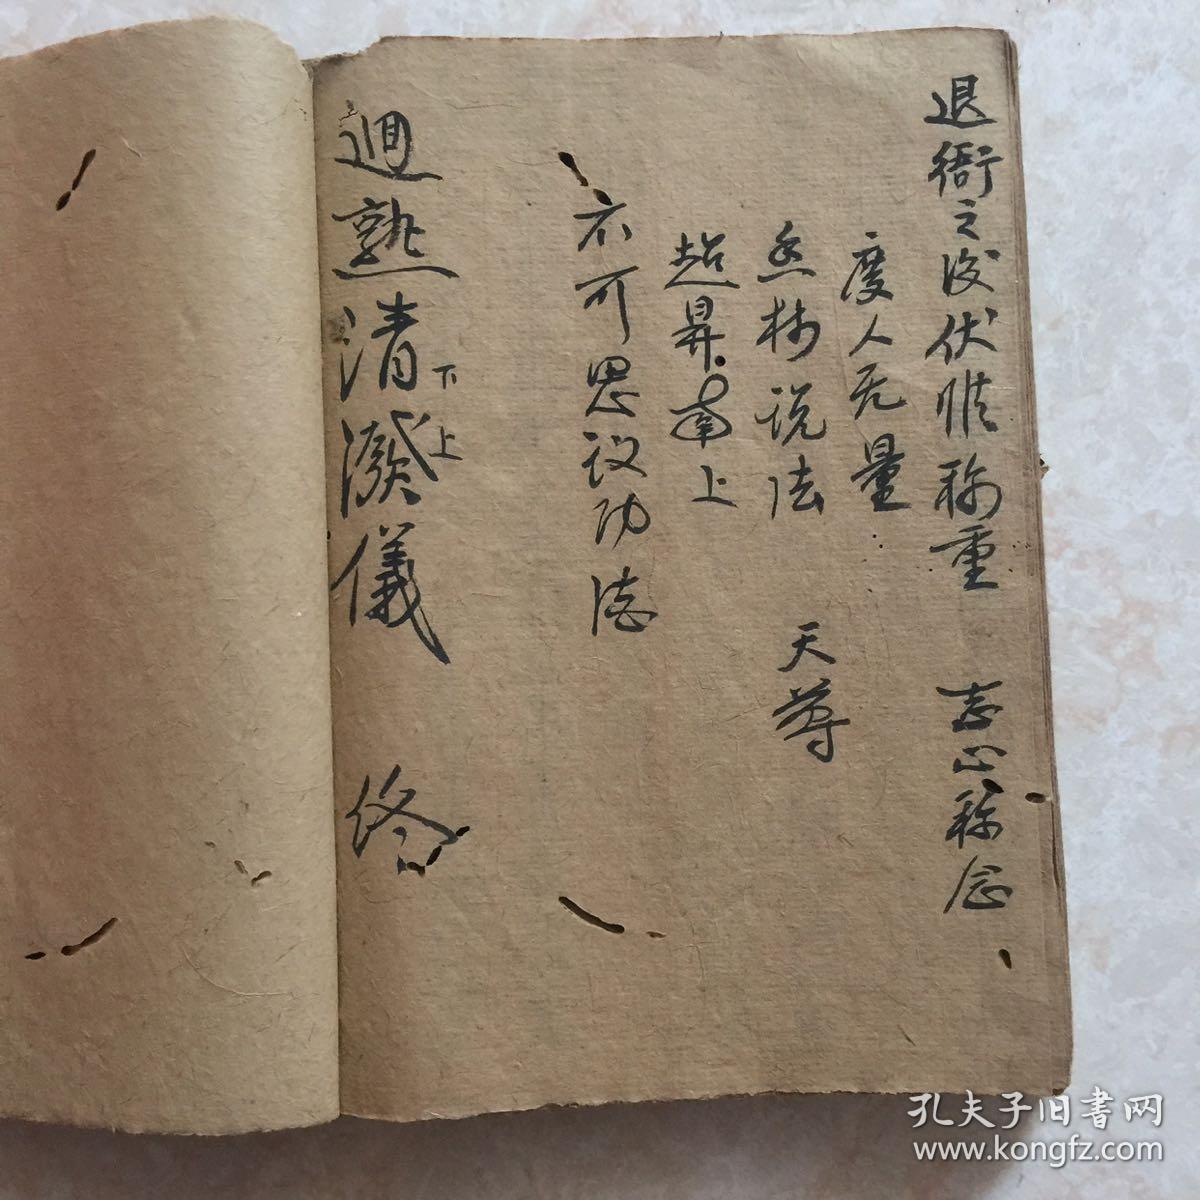 退衙之後伏惟称重 志心称念
度人无量
垂林说法 天尊
超昇南上
不可思议功德
迴熟清潑儀 终
下上
孔夫子旧書网
www.kongfz.com